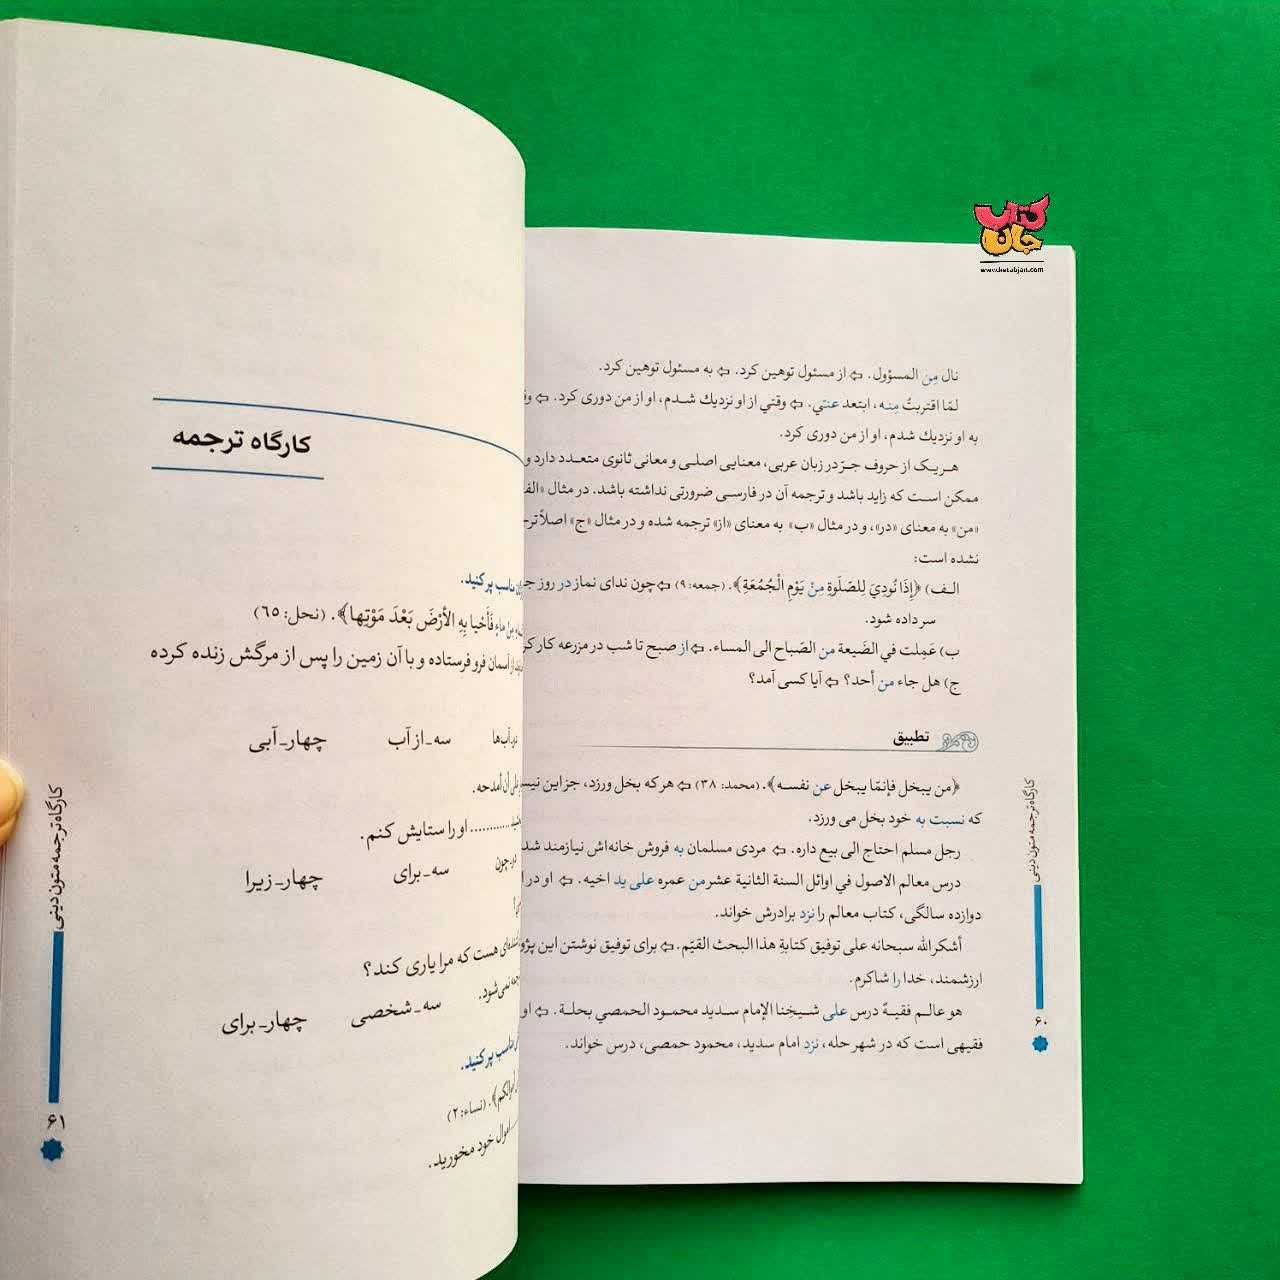 کتاب جان
www.ketabjan.com
نال مِن المسؤول. ⇦ از مسئول توهین کرد. ⇦ به مسئول توهین کرد.
لمّا اقتربتُ مِنـه، ابتعد عنّي. ⇦ وقتي از او نزديك شـدم، او از من دوری کرد. ⇦
به او نزديك شدم، او از من دوری کرد.
هـریـک از حروف جـرّ در زبان عربی، معنایی اصلـی و معانی ثانوی متعـدد دارد و
ممکن اسـت که زاید باشد و ترجمه آن در فارسـی ضرورتی نداشته باشد. در مثال «الف
«من» به معنای «در»، و در مثال «ب» به معنای «از» ترجمه شده و در مثال «ج» اصلاً
نشده است:
الـف) ﴿إِذَا نُودِيَ لِلصَّلَوةِ مِنْ يَوْمِ الْجُمُعَةِ﴾. (جمعه: ۹) ⇦ چون ندای نماز در روز
سر داده شود.
ب) عَمِلت في الضَّيعة من الصّباح الى المساء. ⇦ از صبح تا شب در مزرعه کار
ج) هل جاء من أحد؟ ⇦ آیا کسی آمد؟
تطبیق
﴿من يبخل فإنمّا يبخل عن نفسـه﴾. (محمد: ۳۸) ⇦ هر که بخل ورزد، جز این
که نسبت به خود بخل می ورزد.
رجل مسلم احتاج الى بيع داره. ⇦ مردی مسلمان به فروش خانه‌اش نیازمند
درس معالم الاصول في اوائل السنة الثانية عشر من عمره على يد اخيه. ⇦ او در
دوازده سالگی، کتاب معالم را نزد برادرش خواند.
أشکر الله سبحانه على توفيق كتابةِ هذا البحث القيّم. ⇦ برای توفیق نوشتن این
ارزشمند، خدا را شاکرم.
هو عالـم فقيـهٌ درس على شـيخِنا الإمام سـديد محمـود الحمصي بحلـة. ⇦ او
فقیهی است که در شهر حله، نزد امام سدید، محمود حمصی، درس خواند.
کارگاه ترجمه متون دینی
۶۰
کارگاه ترجمه
مناسب پر کنید.
ماءٍ فَأَحْيا بِهِ الأرْضَ بَعْدَ مَوْتِها﴾. (نحل: ۶۵)
از آسمان فرو فرستاده و با آن زمین را پس از مرگش زنده کرده
سه ـ از آب چهار ـ آبی
أن أمدحه.
............ او را ستایش کنم.
سه ـ برای چهار ـ زیرا
هست که مرا یاری کند؟
نمی‌شود. سه ـ شخصی چهار ـ برای
مناسب پر کنید.
(نساء: ۲)
اموال خود مخورید.
کارگاه ترجمه متون دینی
۶۱